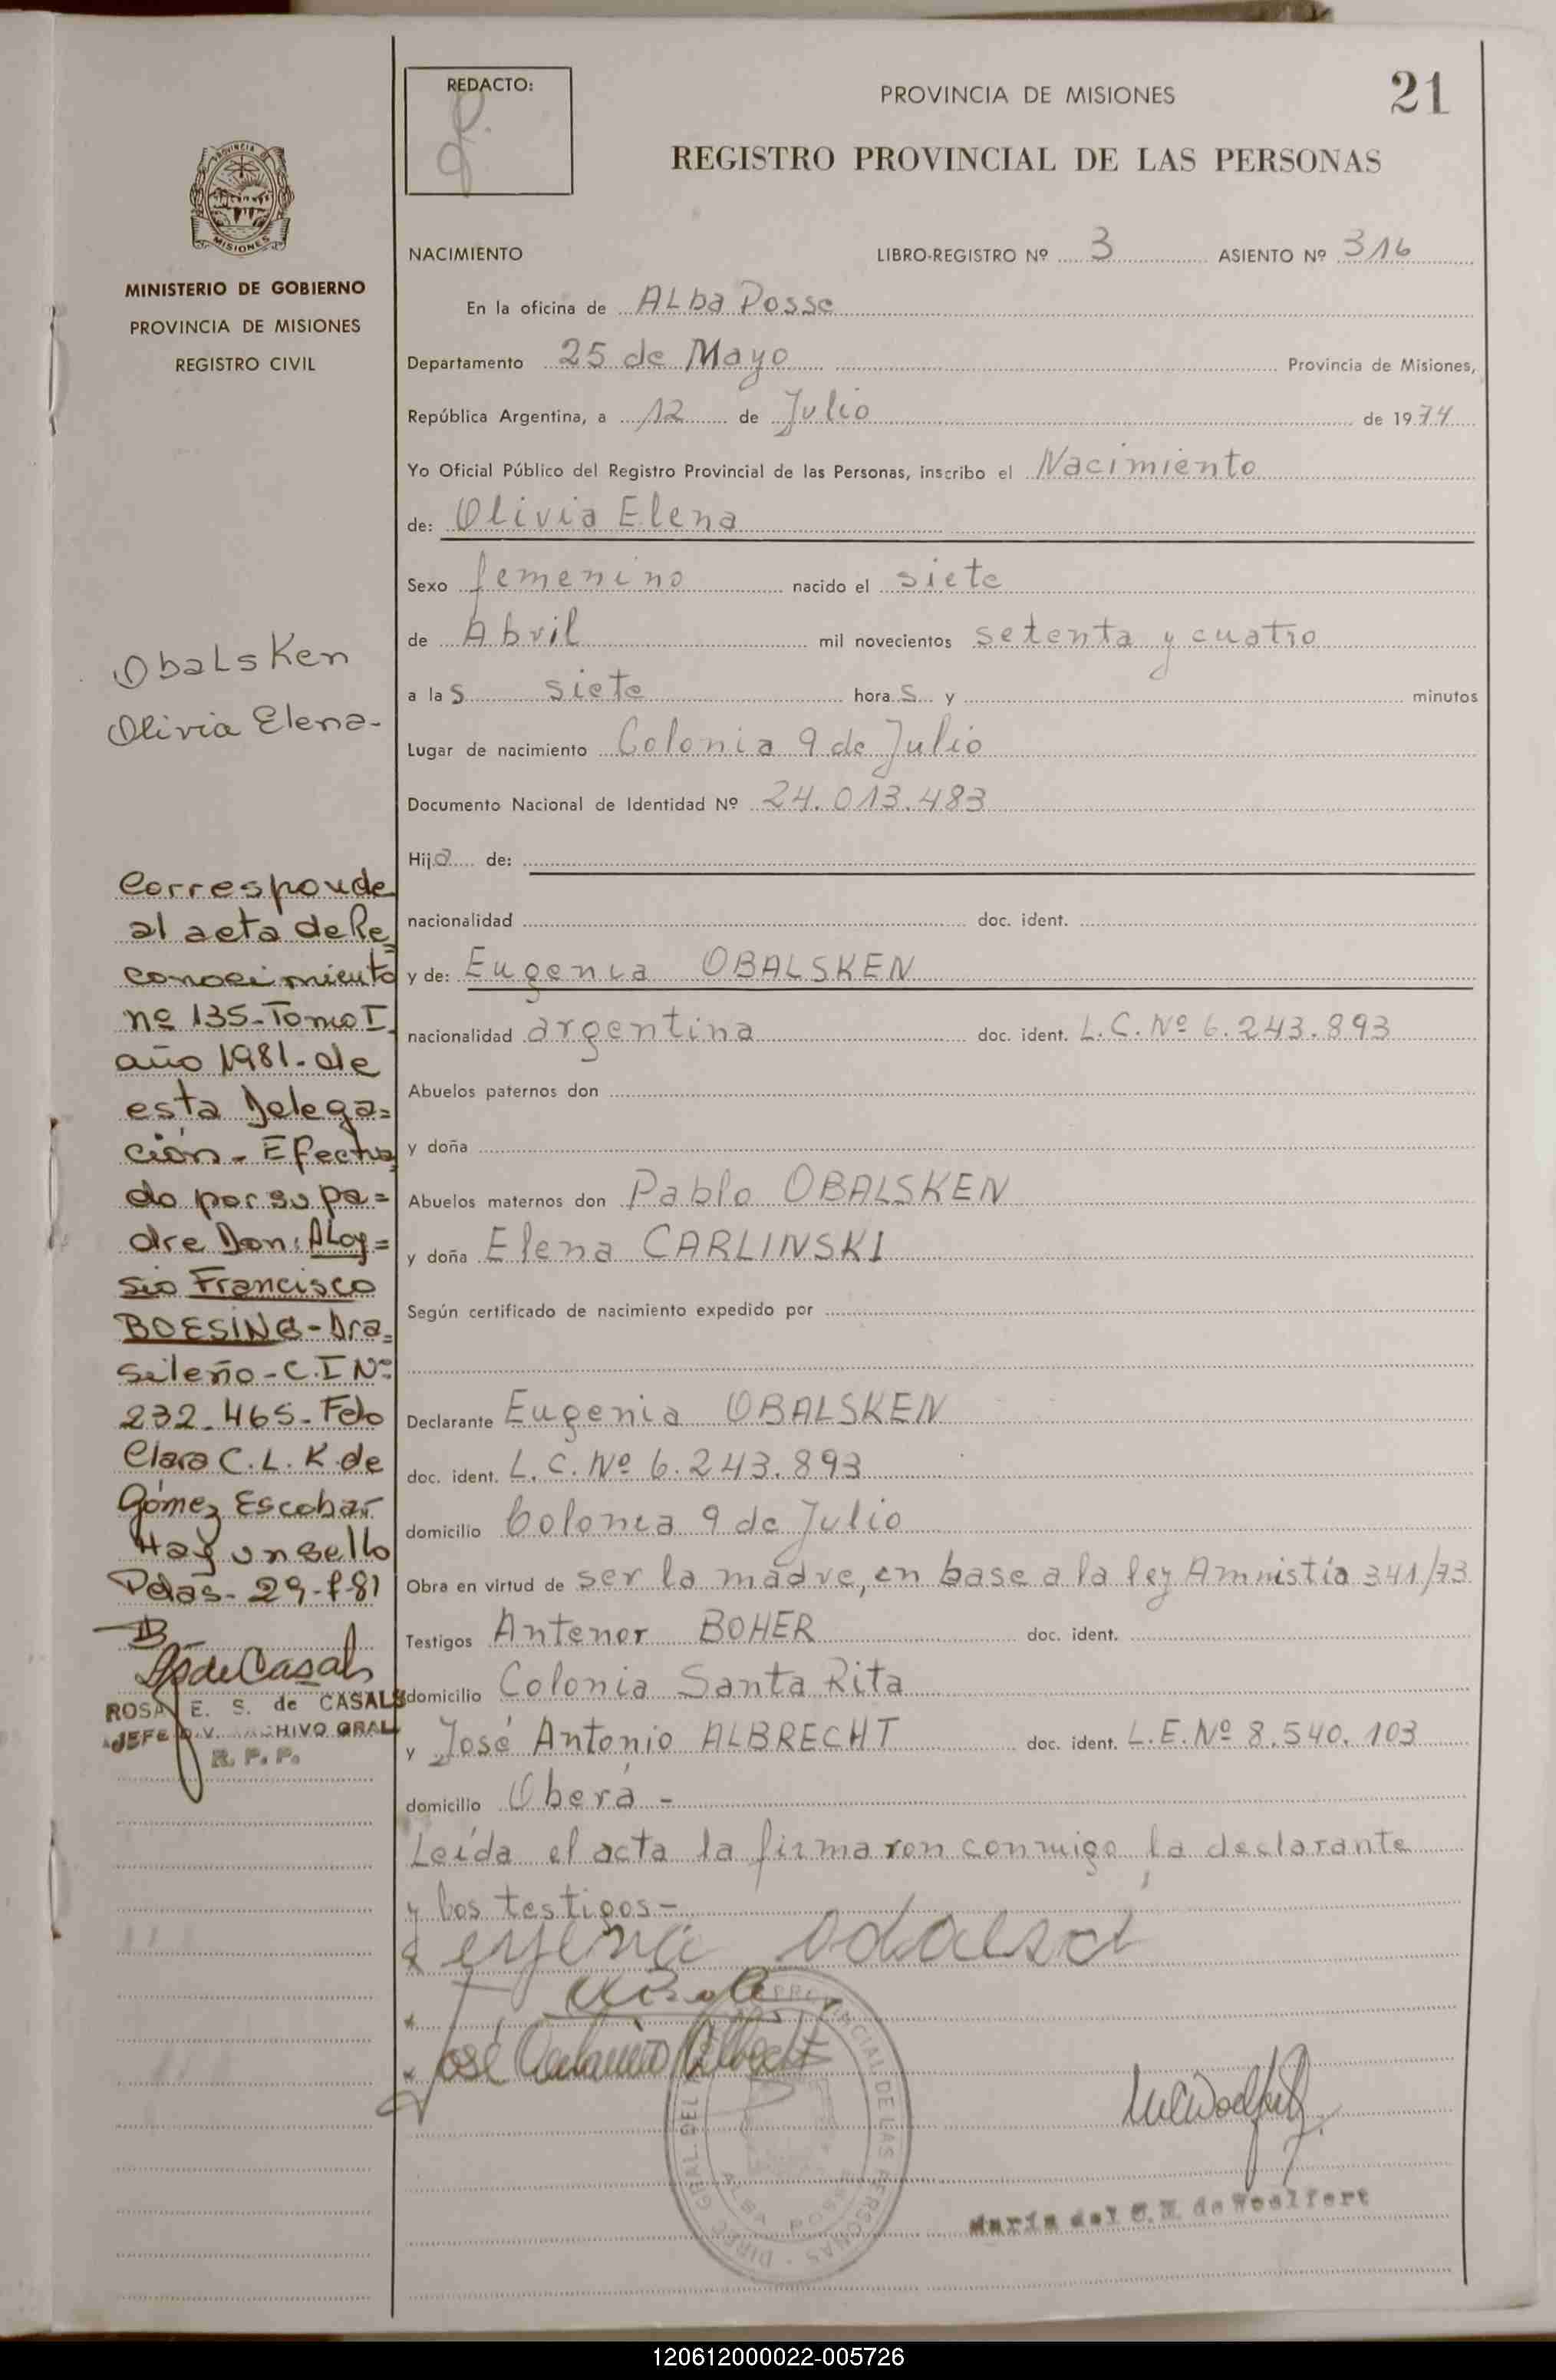 REDACTO:
PROVINCIA DE MISIONES
21
REGISTRO PROVINCIAL DE LAS PERSONAS
PROVINCIA DE
MISIONES
MINISTERIO DE GOBIERNO
PROVINCIA DE MISIONES
REGISTRO CIVIL
Obalsken
Olivia Elena-
Corresponde
al acta de Re=
conocimiento
nº 135-Tomo I.
año 1981-de
esta Delega=
ción-Efectua
do por su pa=
dre Don: ALoy=
sio Francisco
BOESING-Bra=
sileño-C.I Nº
232.465-Fdo
Clara C.L.K de
Gómez Escobar
Hay un sello
Pdas-29-
ROSA E. S. de CASALS
JEFE DIV. ARCHIVO GRAL
R. P. P.
NACIMIENTO LIBRO-REGISTRO Nº 3 ASIENTO Nº 316
En la oficina de ALba Posse
Departamento 25 de Mayo Provincia de Misiones,
República Argentina, a 12 de Julio de 1974
Yo Oficial Público del Registro Provincial de las Personas, inscribo el Nacimiento
de: Olivia Elena
Sexo femenino nacido el siete
de Abril mil novecientos setenta y cuatro
a las siete horas y minutos
Lugar de nacimiento Colonia 9 de Julio
Documento Nacional de Identidad Nº 24.013.483
Hija de:
nacionalidad doc. ident.
y de: Eugenia OBALSKEN
nacionalidad argentina doc. ident. L.C.Nº 6.243.893
Abuelos paternos don
y doña
Abuelos maternos don Pablo OBALSKEN
y doña Elena CARLINSKI
Según certificado de nacimiento expedido por
Declarante Eugenia OBALSKEN
doc. ident. L.C.Nº 6.243.893
domicilio Colonia 9 de Julio
Obra en virtud de ser la madre, en base a la ley Amnistía 341/73
Testigos Antenor BOHER doc. ident.
domicilio Colonia Santa Rita
y José Antonio ALBRECHT doc. ident. L.E.Nº 8.540.103
domicilio Oberá -
Leída el acta la firmaron conmigo la declarante
y los testigos-
José Antonio Albrecht
DIREC. GRAL. DEL PROVINCIAL DE LAS PERSONAS
ALBA POSSE
María del C. M. de Woelfert
120612000022-005726